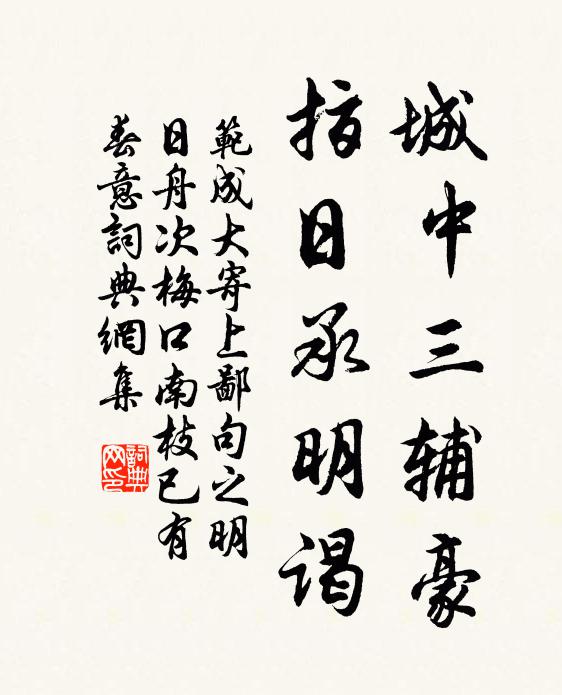 城中三辅豪
指日承明谒
範成大寄上鄙句之明
日舟次梅口南枝已有
春意詞典網集
詞典网印